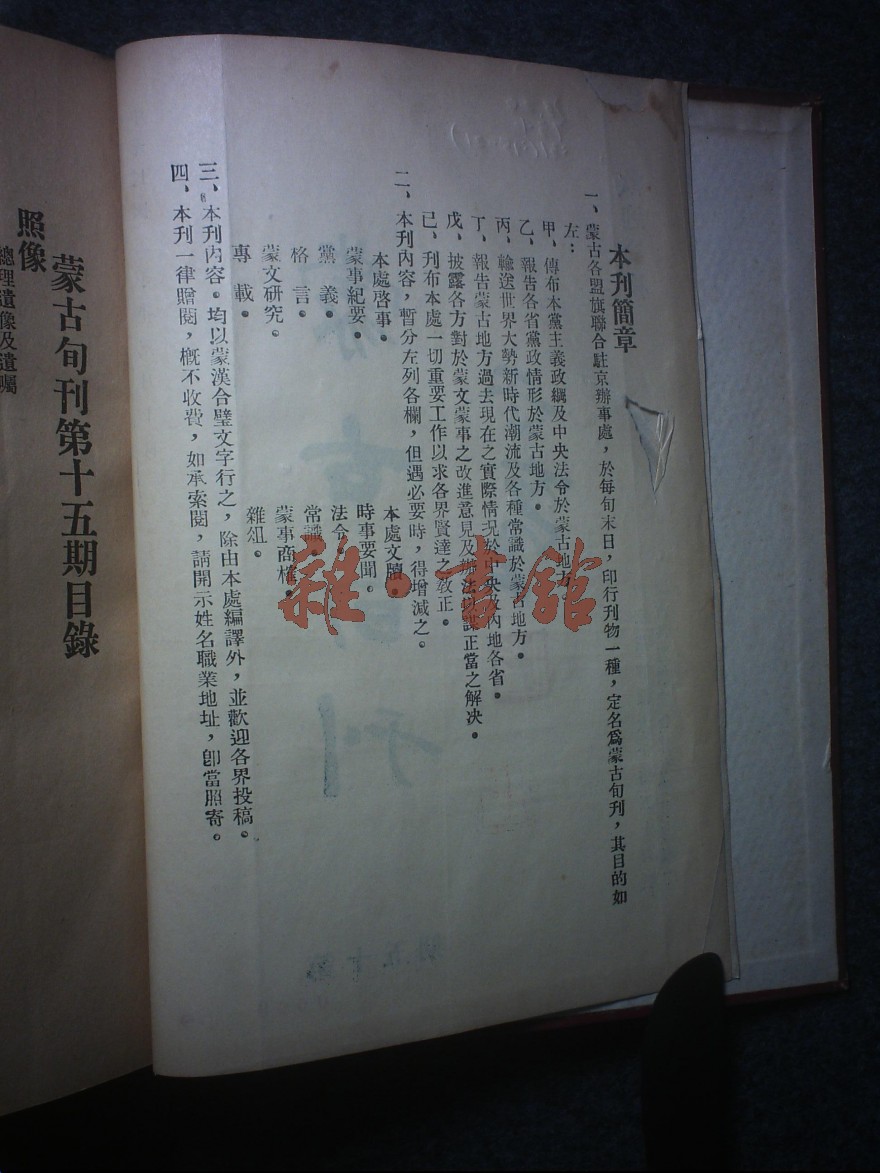 本刊簡章
一、蒙古各盟旗聯合駐京辦事處，於每旬末日，印行刊物一種，定名爲蒙古旬刊，其目的如
左：
甲、傳布本黨主義政綱及中央法令於蒙古地方。
乙、報告各省黨政情形於蒙古地方。
丙、輸送世界大勢新時代潮流及各種常識於蒙古地方。
丁、報告蒙古地方過去現在之實際情况於中央及內地各省。
戊、披露各方對於蒙文蒙事之改進意見及辦法以謀正當之解决。
已、刊布本處一切重要工作以求各界賢達之教正。
二、本刊內容，暫分左列各欄，但遇必要時，得增減之。
本處啓事。 本處文牘。
蒙事紀要。 時事要聞。
黨義。 法令。
格言。 常識。
蒙文研究。 蒙事商榷。
專載。 雜俎。
三、本刊內容。均以蒙漢合璧文字行之，除由本處編譯外，並歡迎各界投稿。
四、本刊一律贈閱，槪不收費，如承索閱，請開示姓名職業地址，卽當照寄。
蒙古旬刊第十五期目錄
照像
總理遺像及遺囑
雜·書館